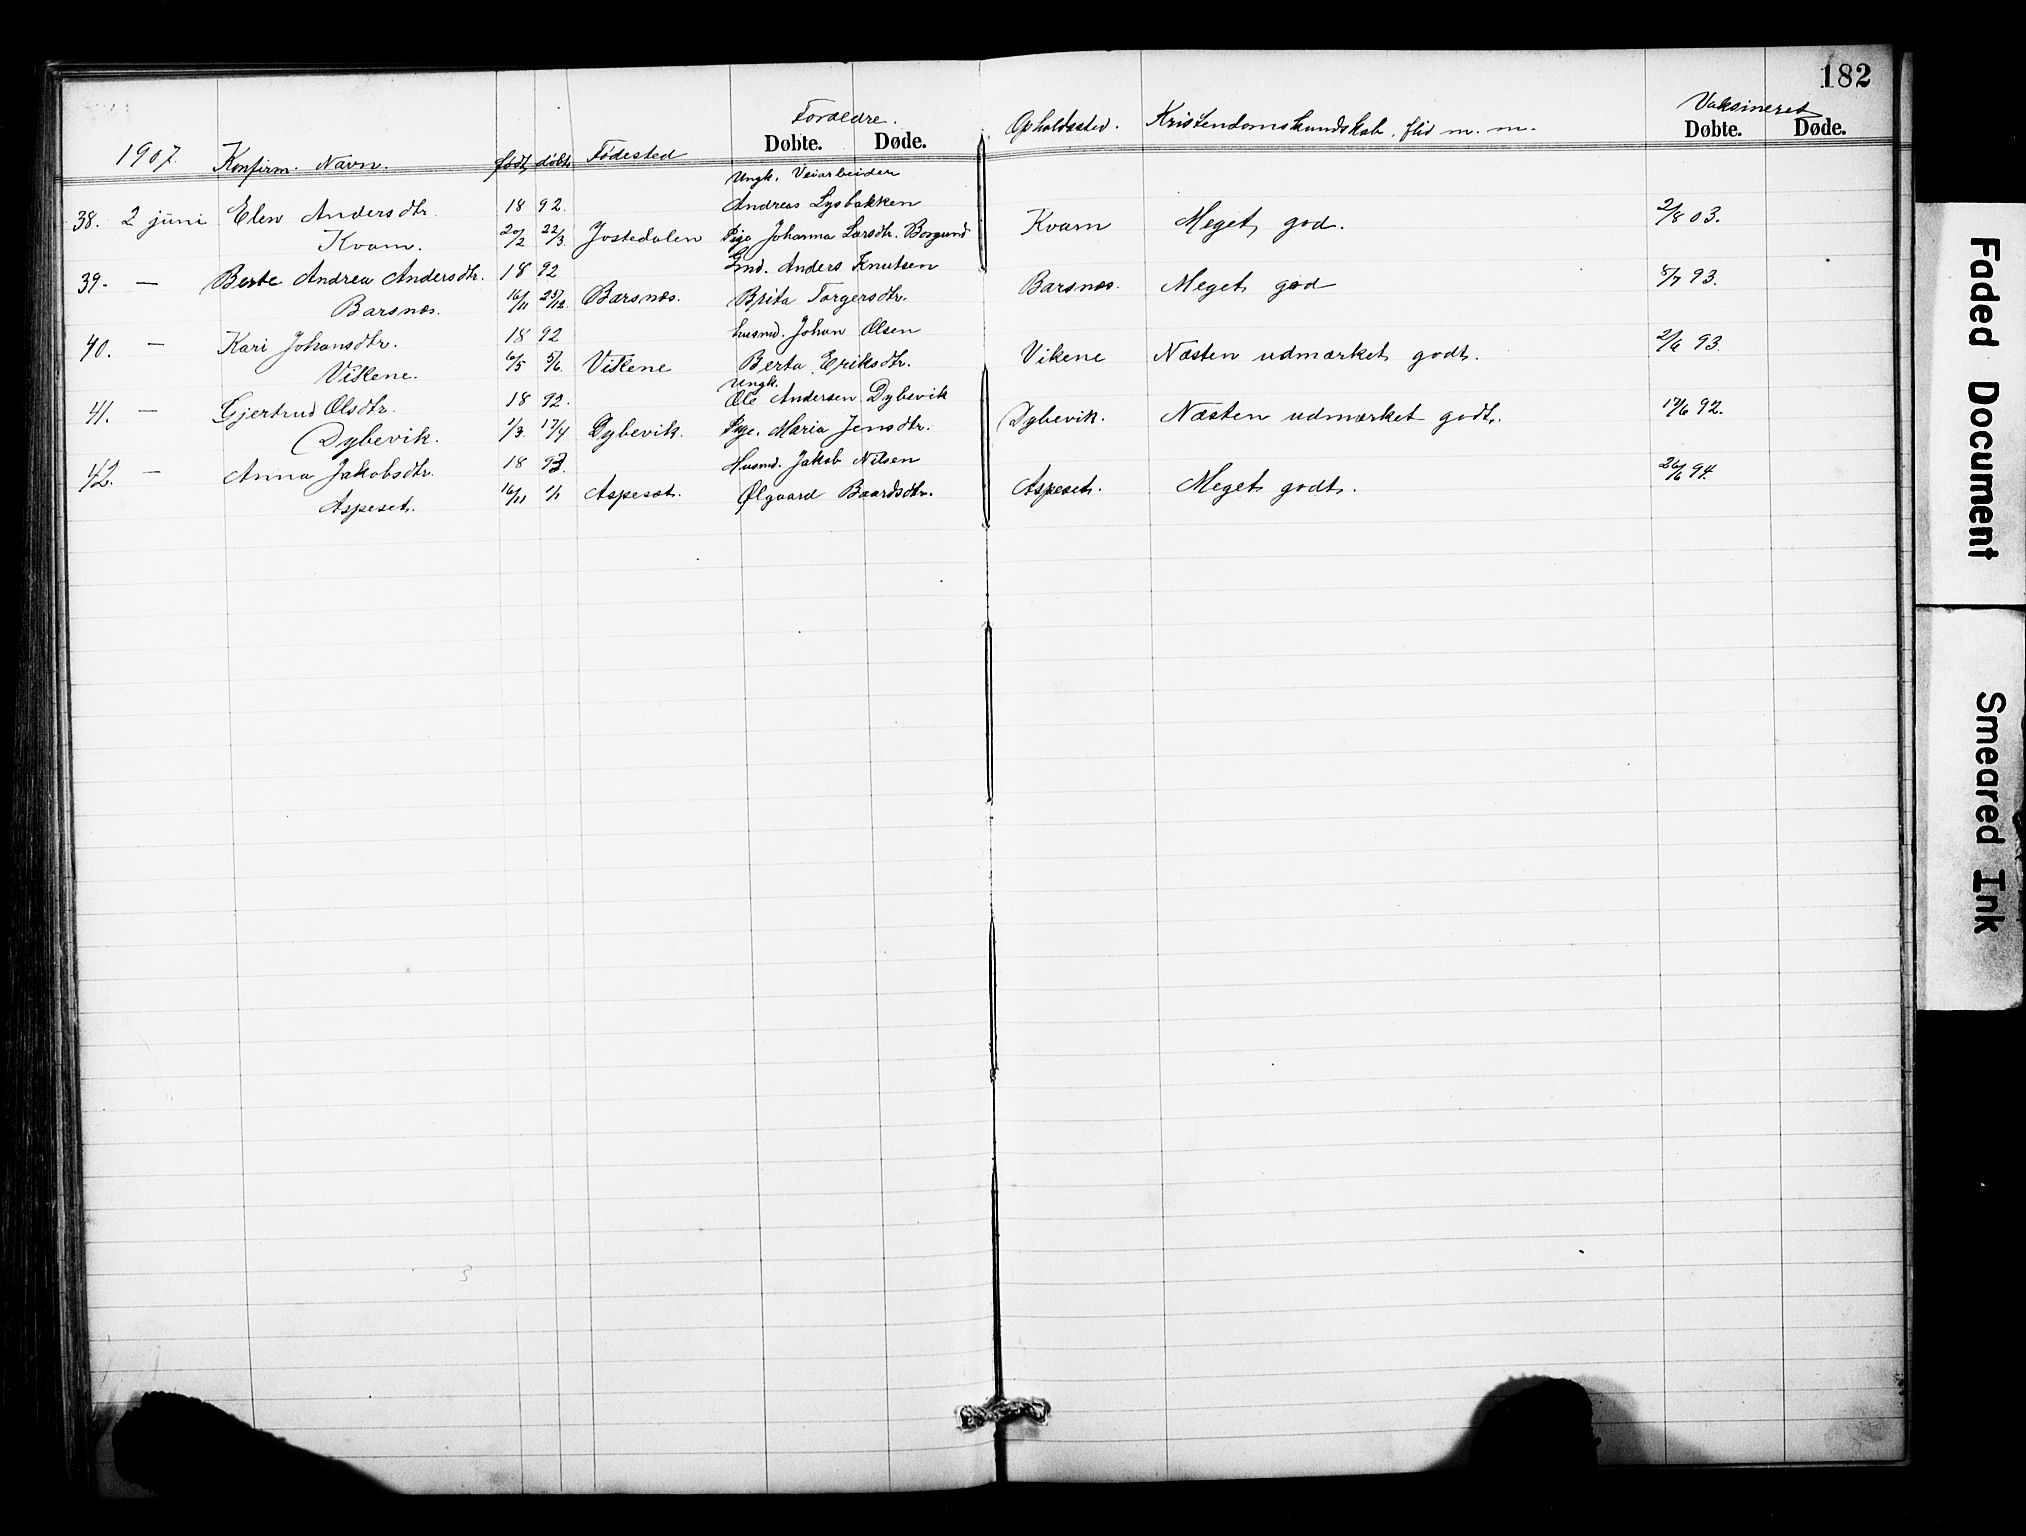 182
Forældre. Vaksineret
1907. Konfirm. Navn. født døbt Fødested Døbte. Døde. Opholdssted. Kristendomskundskab, flid m. m. Døbte. Døde.
Ungk. Veiarbeider
38. 2 juni Elen Andersdtr. 18 92. Andreas Lysbakken Kvam Meget god. 2/8 03.
Kvam. 20/2 22/3. Jostedalen Pige Johanna Larsdtr. Borgund
39. — Berte Andrea Andersdtr. 18 92 Ind. Anders Knutsen Barsnæs. Meget god 5/7 93.
Barsnæs. 16/11 25/12 Barsnæs. Brita Torgersdtr.
40. — Kari Johansdtr. 18 92 husmd. Johan Olsen Vikene Næsten udmærket godt. 2/6 93.
Vikene. 6/5 5/6. Vikene Berta Eriksdtr.
Ungk.
41. — Gjertrud Olsdtr. 18 92. Ole Andersen Dybevik Dybevik. Næsten udmærket godt. 17/6 92.
Dybevik. 1/3. 17/4 Dybevik. Pige. Maria Jensdtr.
42. — Anna Jakobsdtr. 18 93. Husmd. Jakob Nilsen Aspeset. Meget godt. 26/6 94.
Aspeset. 16/11 1/1 Aspesæt. Ølgaard Baardsdtr.
3
Faded Document
Smeared Ink